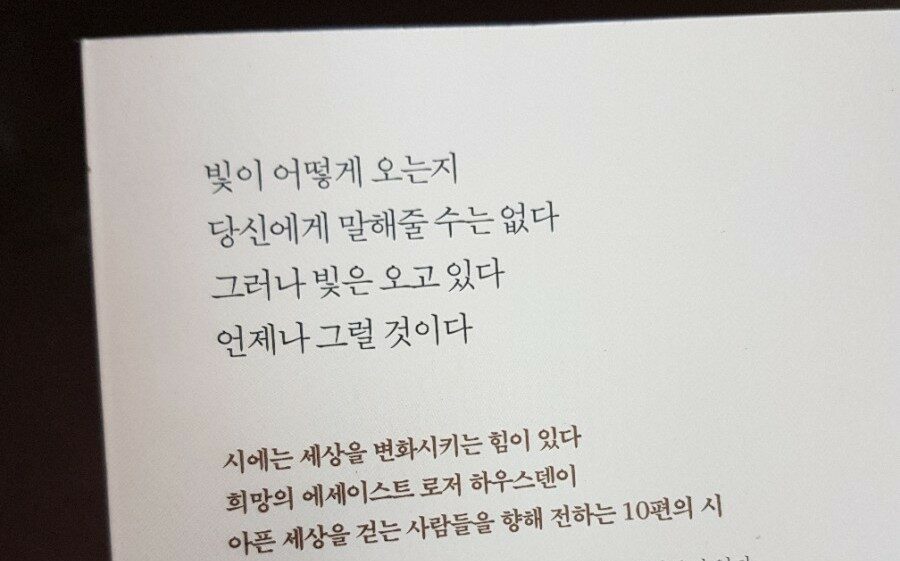 빛이 어떻게 오는지
당신에게 말해줄 수는 없다
그러나 빛은 오고 있다
언제나 그럴 것이다
시에는 세상을 변화시키는 힘이 있다
희망의 에세이스트 로저 하우스덴이
아픈 세상을 걷는 사람들을 향해 전하는 10편의 시